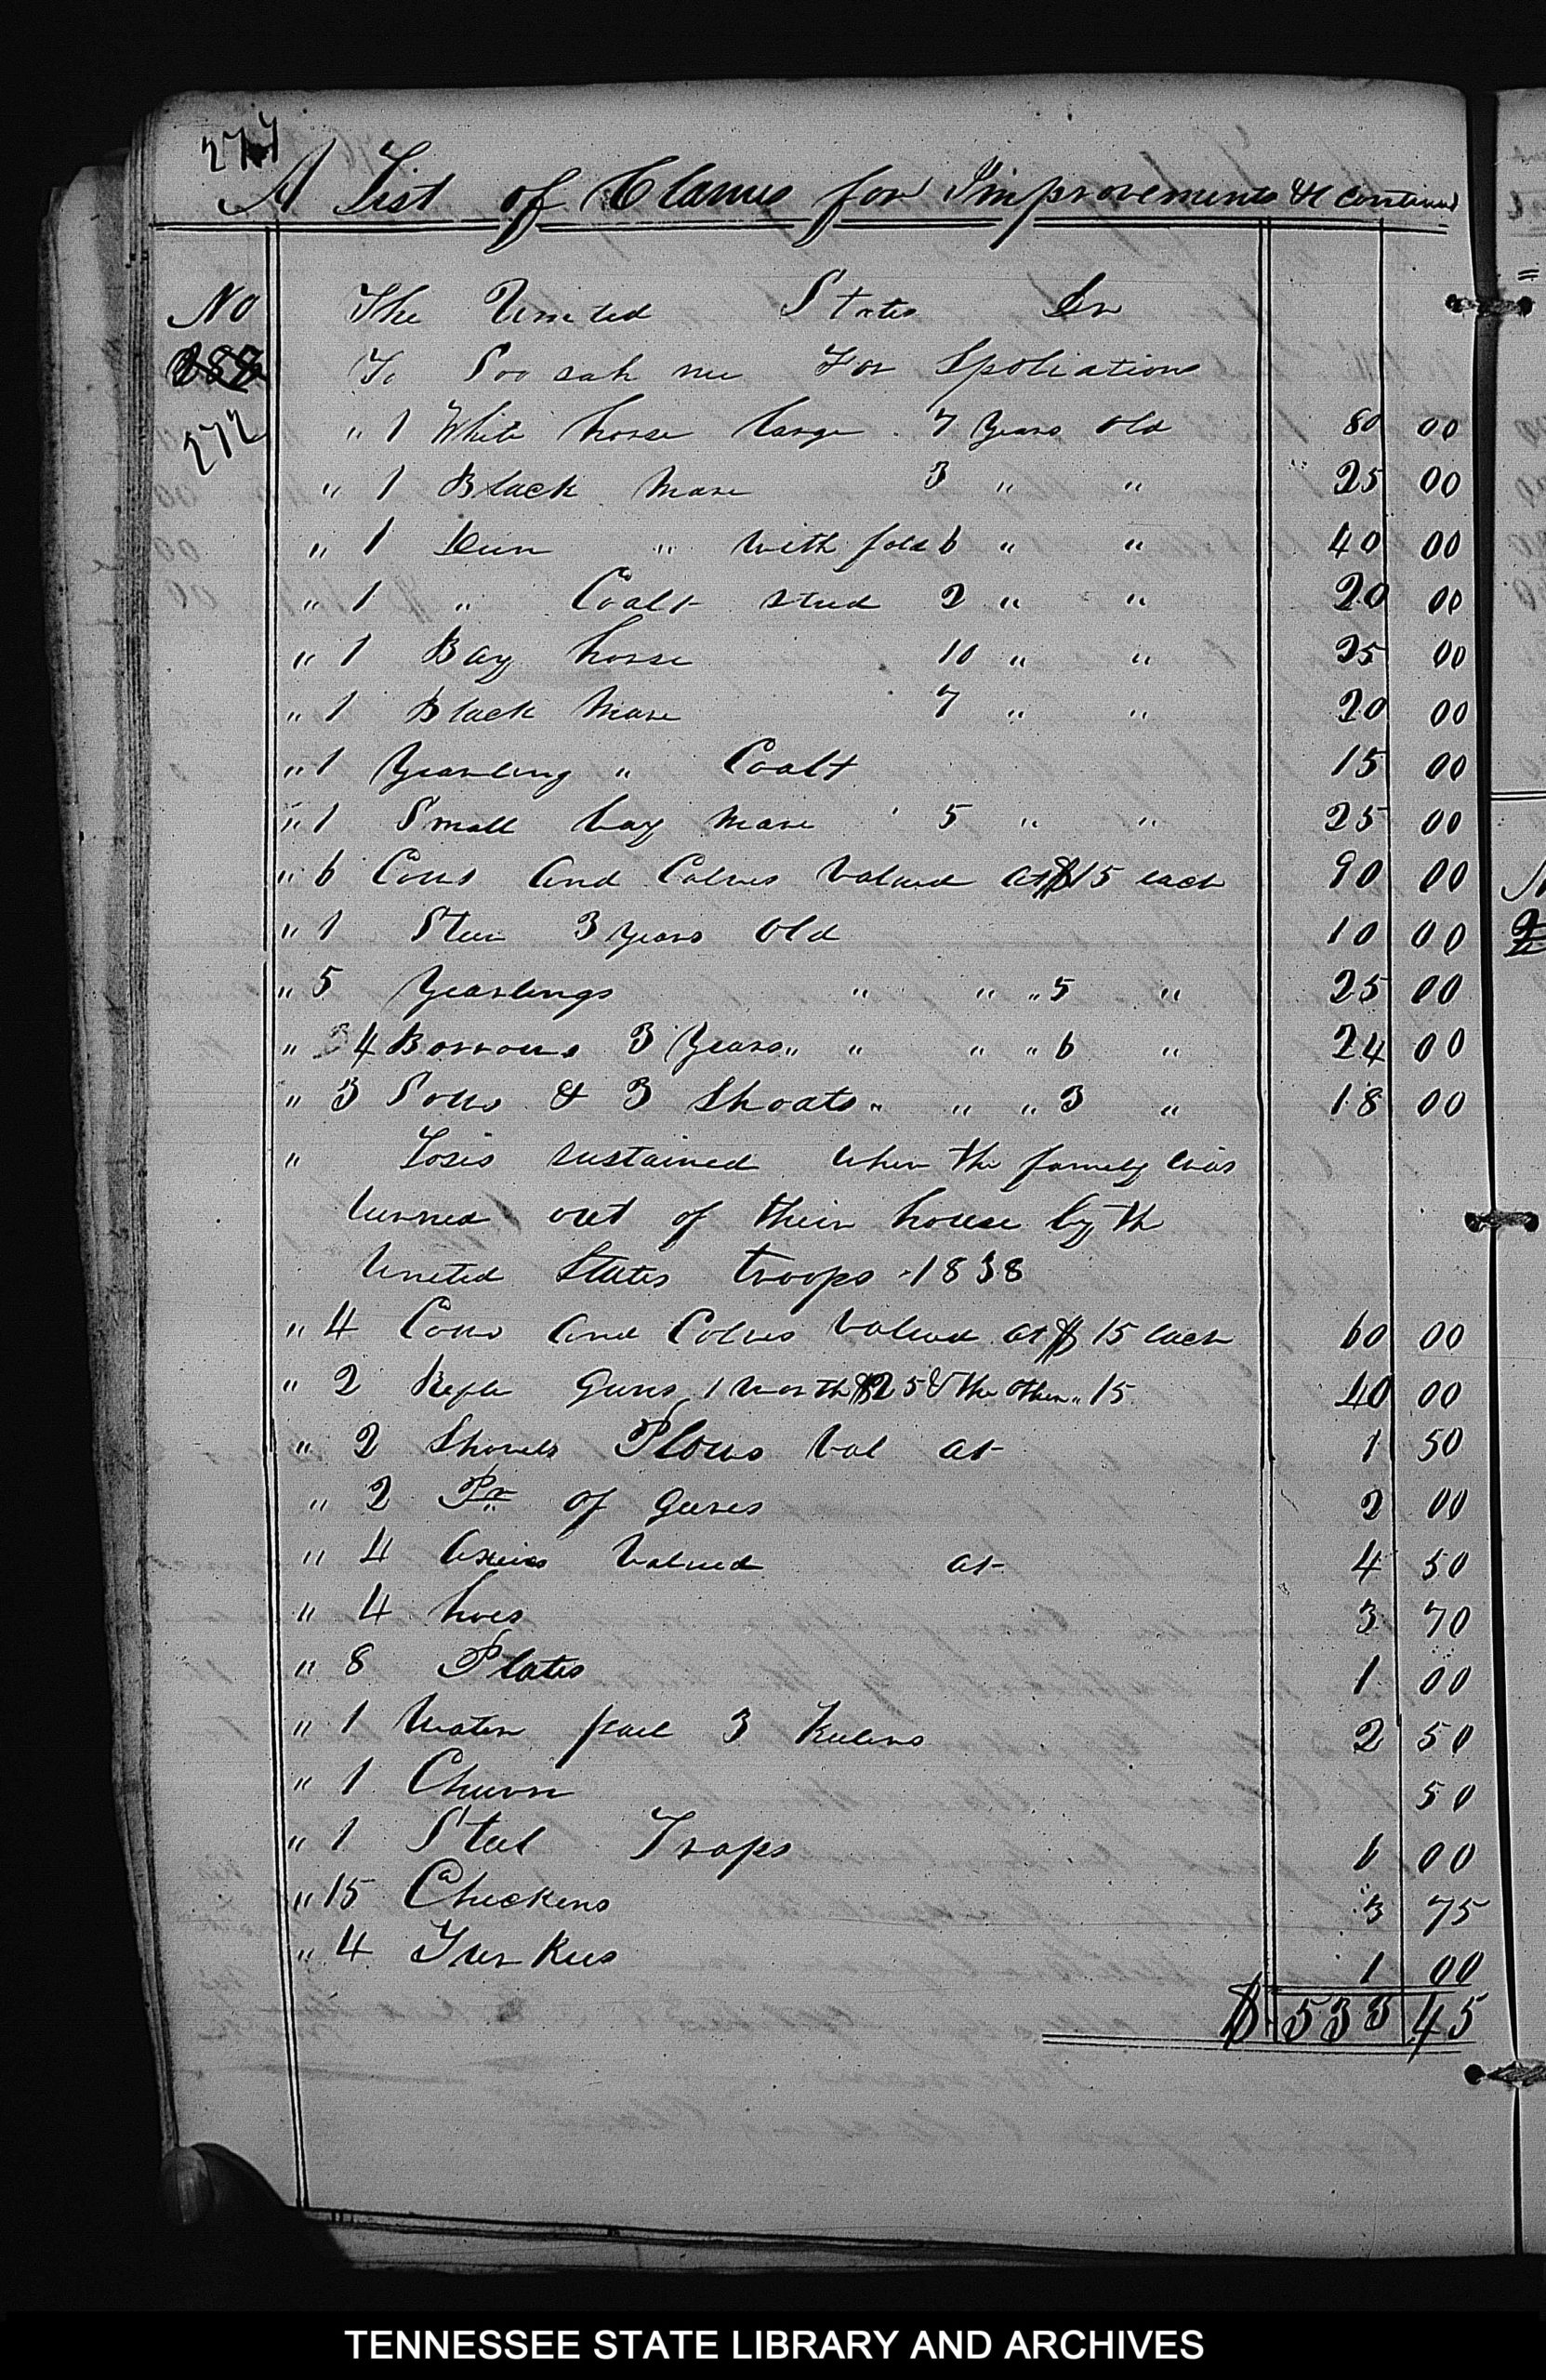 277
A List of Claims for Improvements &c continued
No The United States Dr
288 To Soo sah nee For Spoliations
272 " 1 White horse large 7 Years old 80 00
" 1 Black Mare 3 " " 25 00
" 1 Dun " with fold 6 " " 40 00
" 1 " Coalt stud 2 " " 20 00
" 1 Bay horse 10 " " 25 00
" 1 Black Mare 7 " " 20 00
" 1 Yearling " Coalt 15 00
" 1 Small bay Mare 5 " " 25 00
" 6 Cows and Calves valued at $15 each 90 00
" 1 Steer 3 Years old 10 00
" 5 Yearlings " " " 5 " 25 00
" 4 Borrows 3 Years " " " " 6 " 24 00
" 3 Sows & 3 Shoats " " " 3 " 18 00
" Loss sustained when the family was
turned out of their house by th
United States troops 1838
" 4 Cows and Calves valued at $ 15 each 60 00
" 2 Rifle Guns 1 worth $25 & the other " 15 40 00
" 2 Shovels Plows val at 1 50
" 2 Pr of Geeres 2 00
" 4 Axeies valued at 4 50
" 4 hoes 3 70
" 8 Plates 1 00
" 1 Water pail 3 Keelers 2 50
" 1 Churn 50
" 1 Steel Traps 6 00
" 15 Chickens 3 75
" 4 Turkees 1 00
$ 533 45
TENNESSEE STATE LIBRARY AND ARCHIVES